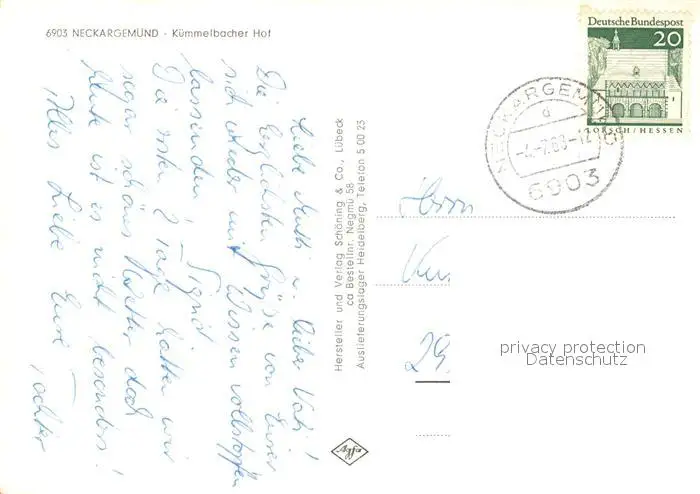 6903 NECKARGEMÜND - Kümmelbacher Hof
Liebe Mutti u. lieber Vati!
Die herzlichsten Grüße von Eurer
sich wieder mit Wissen vollstopfen
lassenden Sigrid
Die ersten 2 Tage hatten wir
sogar schönes Wetter doch
heute ist es nicht besonders!
Alles Liebe Eure Tochter
Hersteller und Verlag Schöning & Co., Lübeck
ca Bestellnr. Negmü 58
Auslieferungslager Heidelberg, Telefon 5 00 25
Agfa
Deutsche Bundespost
20
LORSCH/HESSEN
NECKARGEMÜND
a
6903
Herrn
privacy protection
Datenschutz